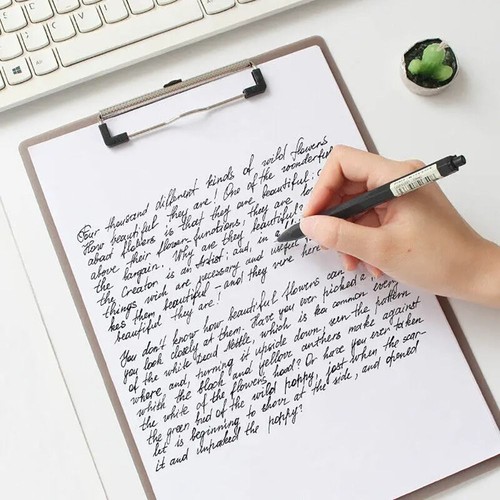 Four thousand different kinds of wild flowers
How beautiful they are! One of the wonderful
abad flowers is that they are beautiful:
above their flower-functions, they are
the bargain. Why are they beautiful?
the Creator is an Artist: and, in
things wich are necessary and useful
kes them beautiful - and they were here
beautiful they are!
You don't know how beautiful flowers can
you look closely at them. Have you ever picked
of the white Dead Nettle, which is common every
where, and, turning it upside down, seen the pattern
which the black and yellow anthers make against
the white of the flowers hood? Or have you ever taken
the green bud of the wild poppy, just when the scar-
let is beginning to show at the side, and opened
it and unpaked the poppy?